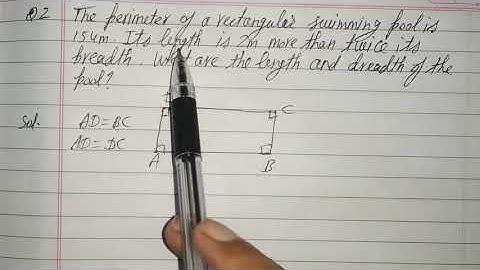 Q.2 The perimeter of a rectangular swimming pool is
154m. Its length is 2m more than twice its
breadth. What are the length and breadth of the
pool?
Sol. AD=BC
C
AD=DC
A
B